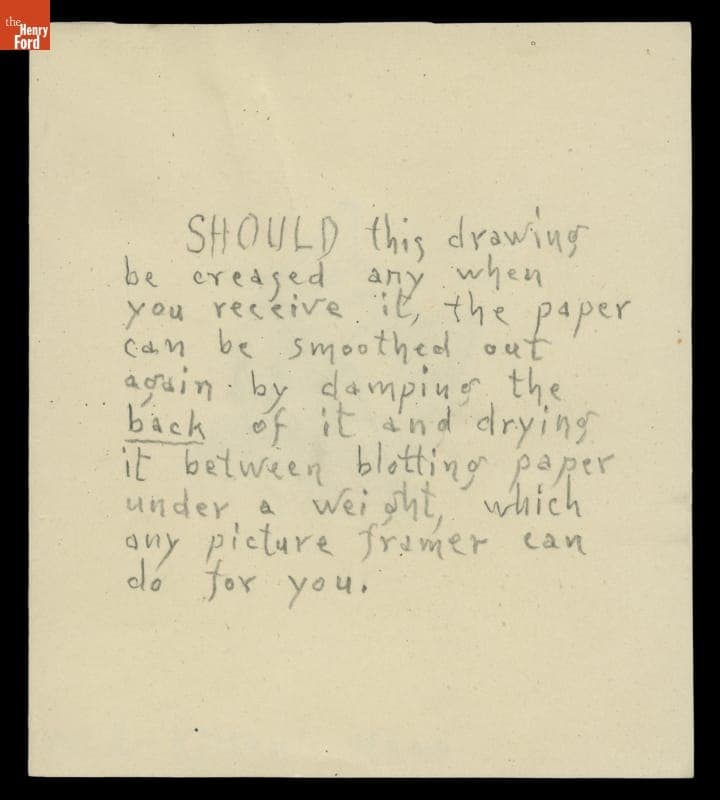 the
Henry
Ford
SHOULD this drawing
be creased any when
you receive it, the paper
can be smoothed out
again by damping the
back of it and drying
it between blotting paper
under a weight, which
any picture framer can
do for you.